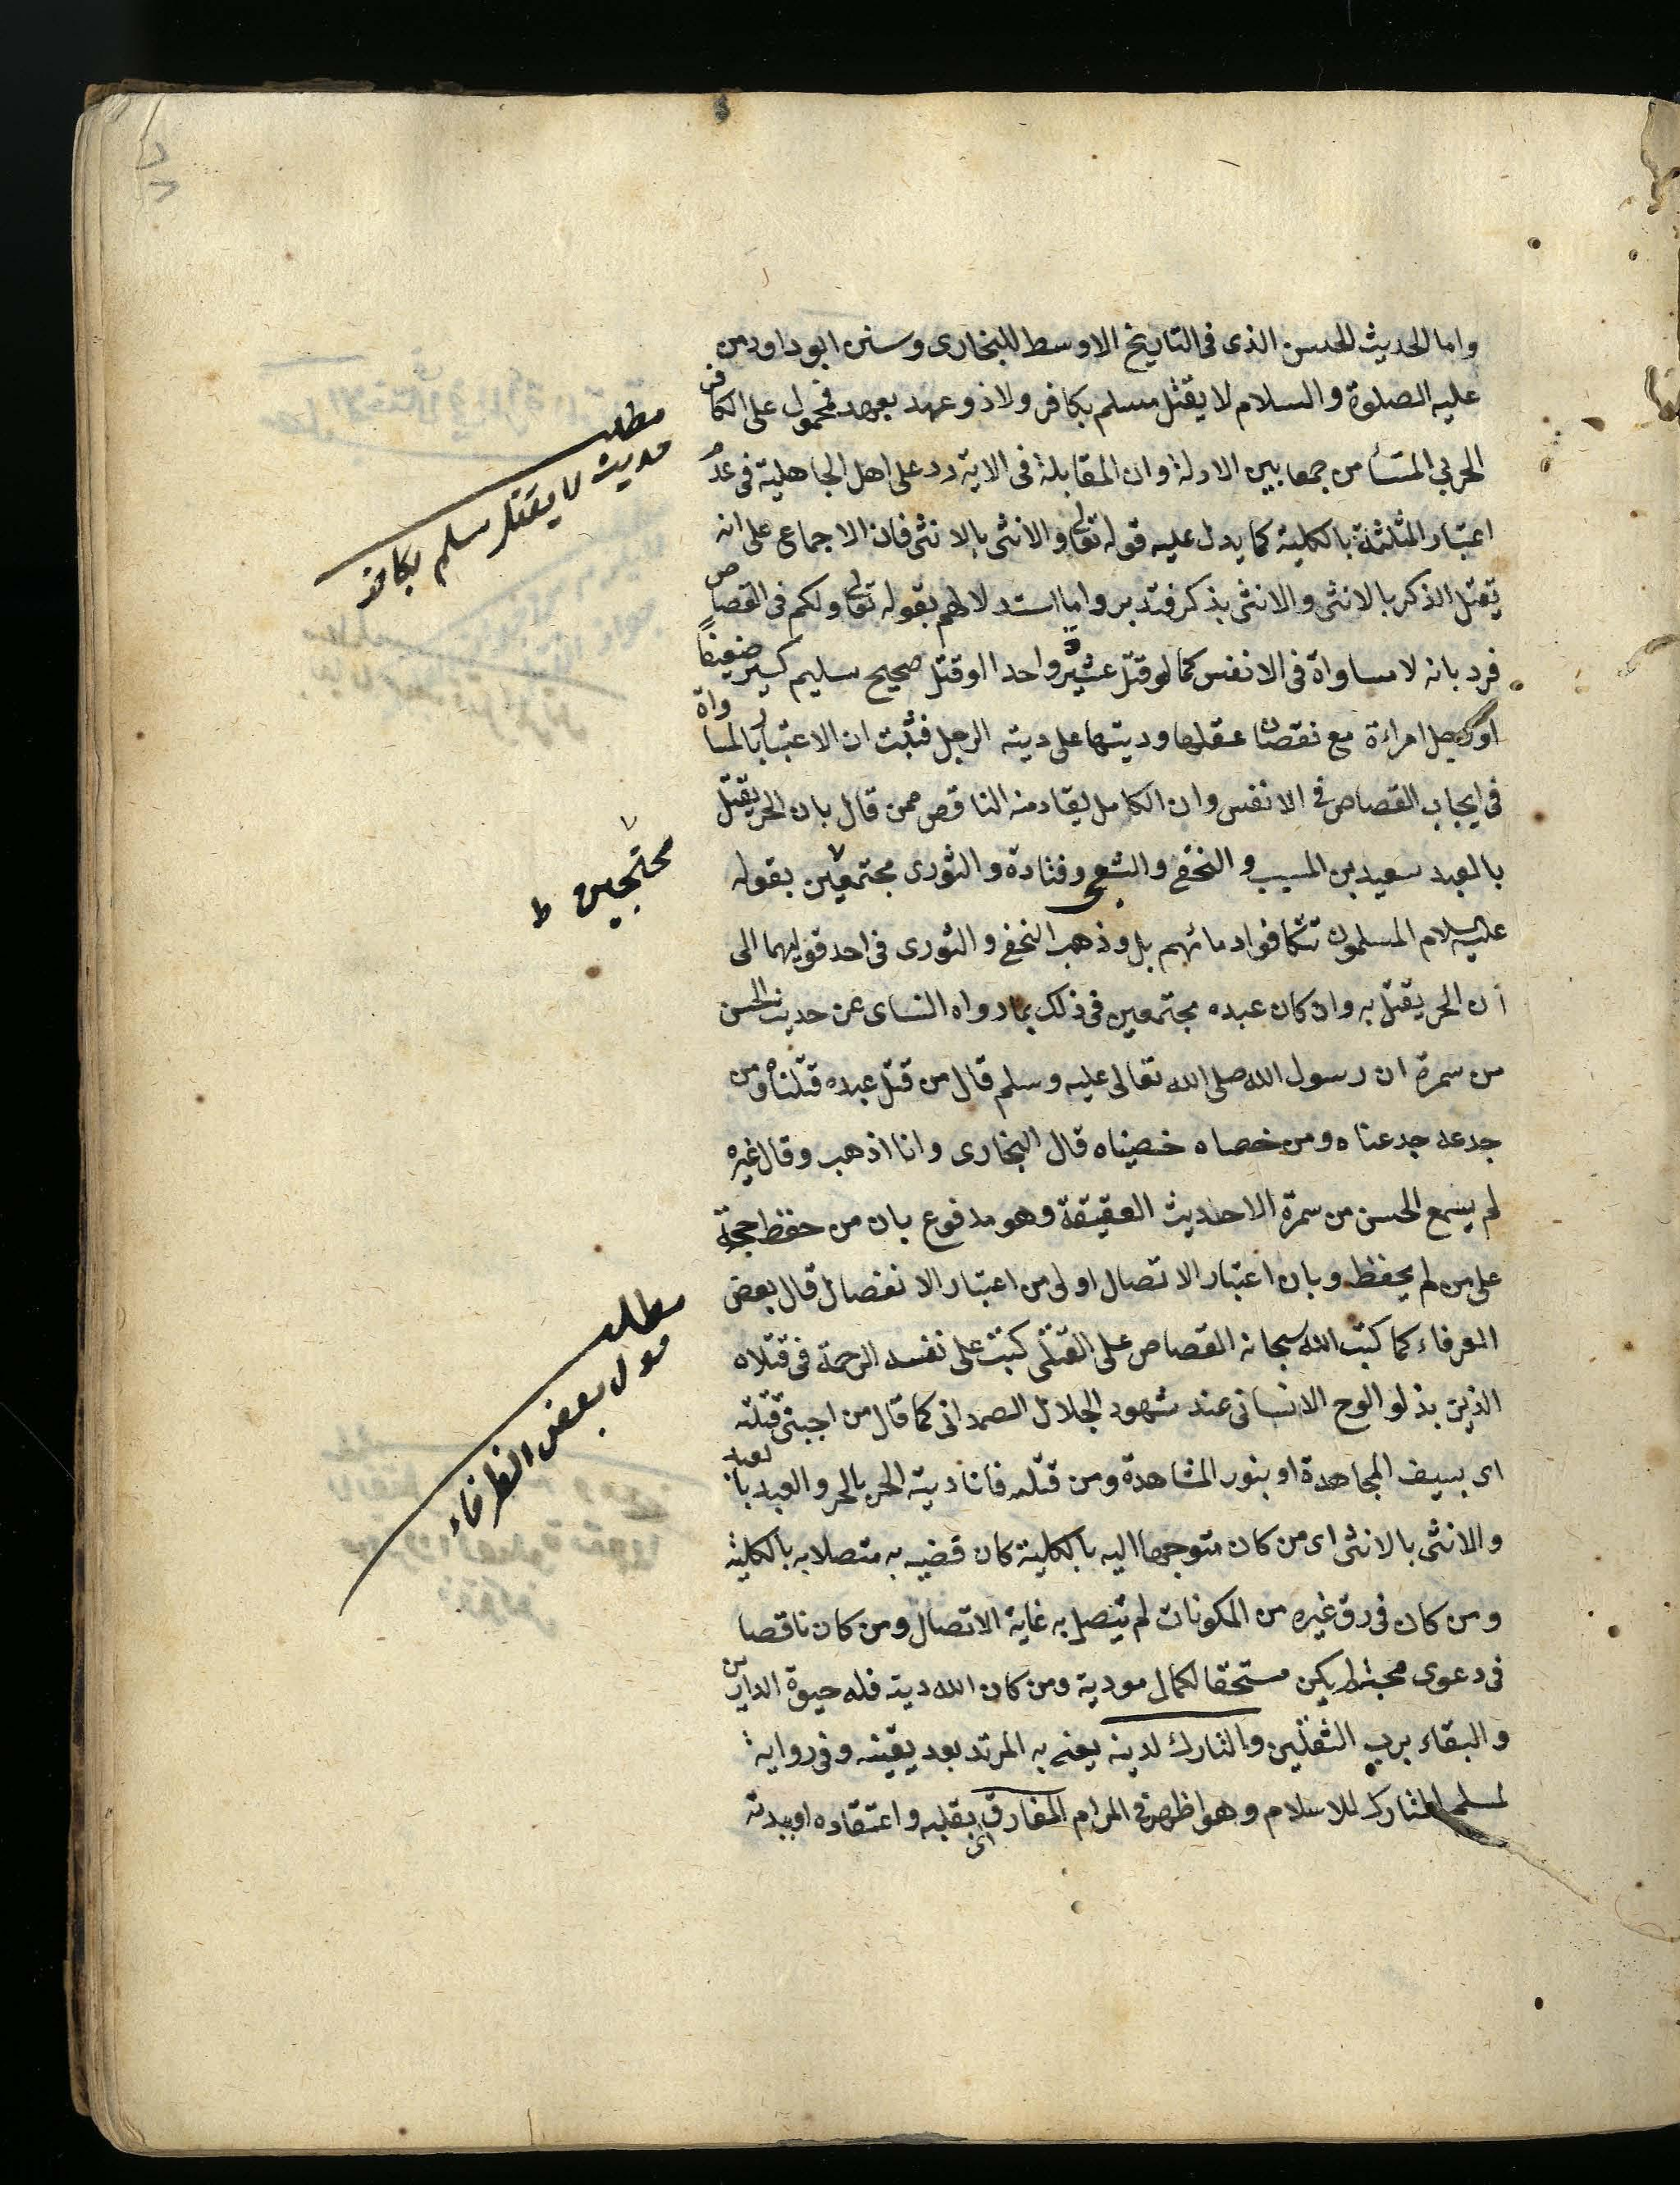 واما الحديث الحسن الذى فى التاريخ الاوسط للبخارى وسنن ابو داود من
عليه الصلوة والسلام لا يقتل مسلم بكافر ولا ذو عهد بعهد فمحمول على الكافر
الحربي المستأمن جمعا بين الادلة وان المقابلة فى الاية رد على اهل الجاهلية فى عدم
اعتبار المثلثة بالكلية كما يدل عليه قوله تعالى والانثى بالانثى فان الاجماع على انه
يقتل الذكر بالانثى والانثى بذكر فتدبر واما استدلالهم بقوله تعالى ولكم فى القصاص
فرد بانه لا مساواة فى الانفس كما لو قتل عشيرة واحدا او قتل صحيح سليم كسير ضعيفا
او رجل امراءة مع نقصان عقلها وديتها على دية الرجل فثبت ان الاعتبار بالمساواة
فى ايجاب القصاص فى الانفس وان الكامل يقاد منه الناقص ممن قال بان الحر يقتل
بالعبد سعيد بن المسيب والنخعي والشعبي وقتادة والثورى مجتمعين بقوله
عليه السلام المسلمون تتكافوا دمائهم بل وذهب النخعي والثورى فى احد قوليهما الى
أن الحر يقتل به وان كان عبده مجتمعين فى ذلك بما رواه النساى عن حديث الحسن
من سمرة ان رسول الله صلى الله تعالى عليه وسلم قال من قتل عبده قتلناه ومن
جدعه جدعناه ومن خصاه خصيناه قال البخارى وانا اذهب وقال غيره
لم يسمع الحسن من سمرة الا حديث العقيقة وهو مدفوع بان من حفظ حجة
على من لم يحفظ وبان اعتبار الاتصال اولى من اعتبار الانفصال قال بعض
العرفاء كما كتب الله سبحانه القصاص على القتلى كتب على نفسه الرحمة فى قتلاه
الذين بذلوا الوح الانسانى عند شهود الجلال الصمدانى كما قال من احبنى قتلته
اى بسيف المجاهدة او بنور المشاهدة ومن قتلته فانا ديته الحر بالحر والعبد بالعبد
والانثى بالانثى اى من كان متوجها اليه بالكلية كان قضيه به متصلا به بالكلية
ومن كان فى رق غيره من المكونات لم يتصل به غاية الاتصال ومن كان ناقصا
فى دعوى محبته لم يكن مستحقا لكمال مودية ومن كان الله ديته فله حيوة الدارين
والبقاء برب الثقلين والتارك لدينه يعنى به المرتد بعد يقينه وفى رواية
لمسلم التارك للاسلام وهو اظهر فى المرام المفارق اى بقلبه واعتقاده او ببدنه
مطلب
حديث لا يقتل مسلم بكافر
محتجين ط
مطلب
قول بعض الظرفاء